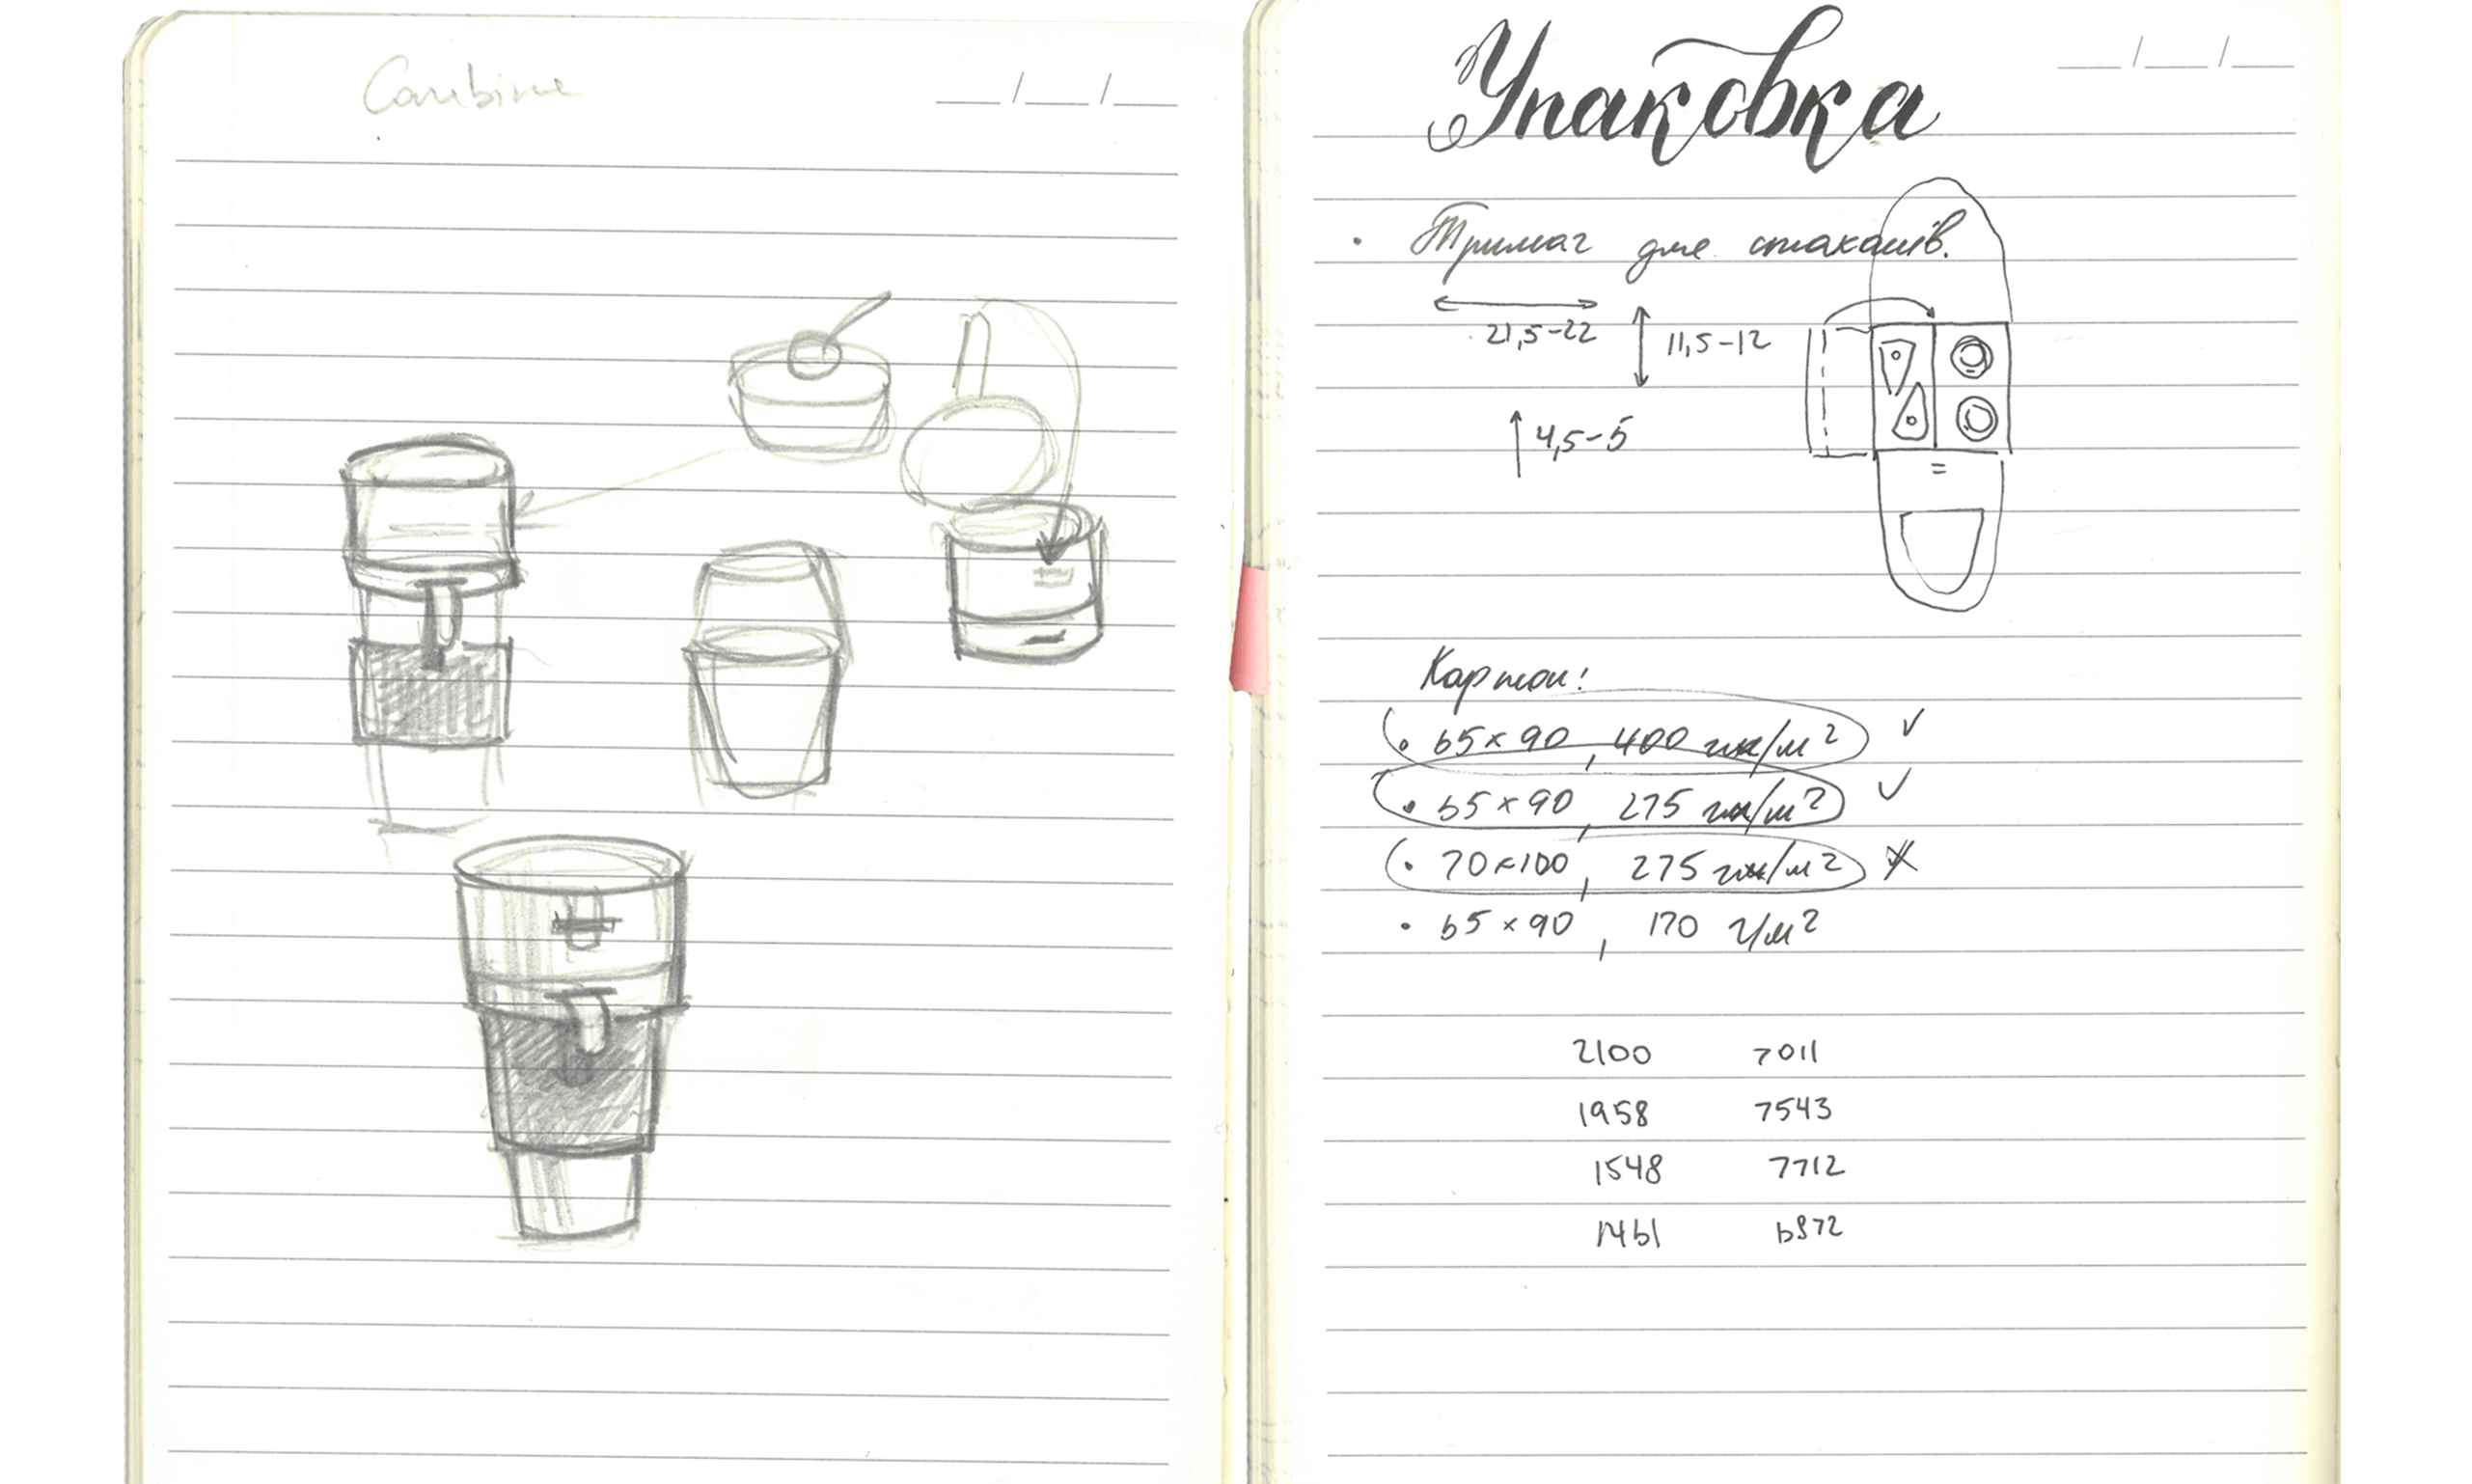 Combine
__/__/__
Упаковка
__/__/__
· Тримач для стаканів.
21,5-22
11,5-12
4,5-5
Картон:
· 65×90, 400 гм/м² ✓
· 65×90, 275 гм/м² ✓
· 70×100, 275 гм/м² ✗
· 65×90, 170 г/м²
2100 7011
1958 7543
1548 7712
1461 6872